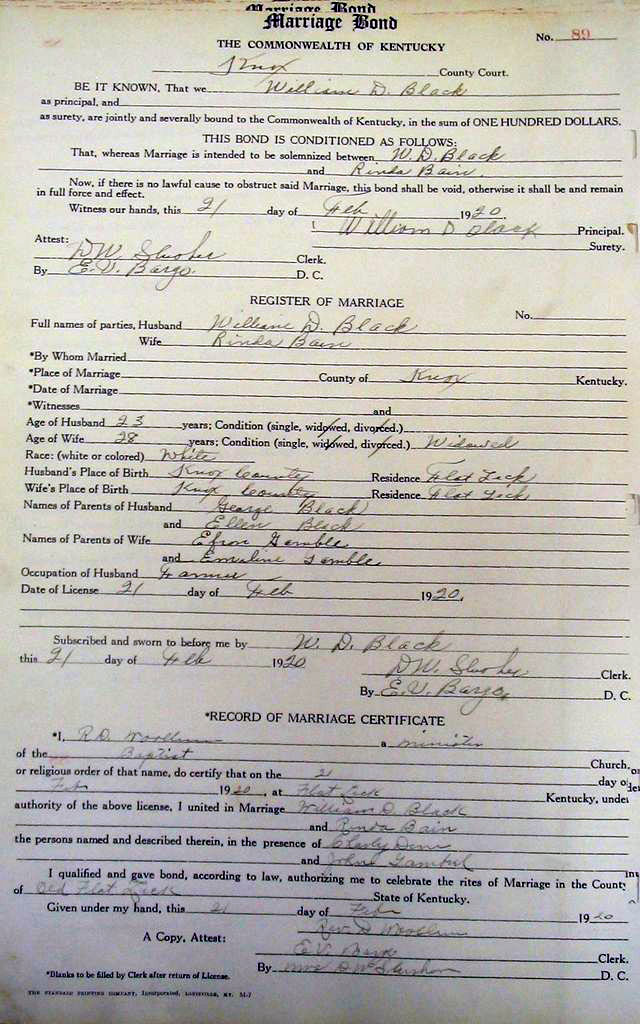 Marriage Bond
Marriage Bond
No. 89
THE COMMONWEALTH OF KENTUCKY
Knox County Court.
BE IT KNOWN, That we William D. Black
as principal, and
as surety, are jointly and severally bound to the Commonwealth of Kentucky, in the sum of ONE HUNDRED DOLLARS.
THIS BOND IS CONDITIONED AS FOLLOWS:
That, whereas Marriage is intended to be solemnized between W. D. Black
and Rinda Bain.
Now, if there is no lawful cause to obstruct said Marriage, this bond shall be void, otherwise it shall be and remain
in full force and effect.
Witness our hands, this 21 day of Feb 1920.
William D Black Principal.
Surety.
Attest:
D.W. Slusher Clerk.
By E.V. Bargo. D. C.
REGISTER OF MARRIAGE
No.
Full names of parties, Husband William D. Black
Wife Rinda Bain
*By Whom Married
*Place of Marriage County of Knox Kentucky.
*Date of Marriage
*Witnesses and
Age of Husband 23 years; Condition (single, widowed, divorced.)
Age of Wife 28 years; Condition (single, widowed, divorced.) Widowed
Race: (white or colored) White
Husband's Place of Birth Knox County Residence Flat Lick
Wife's Place of Birth Knox County Residence Flat Lick
Names of Parents of Husband George Black
and Ellen Black
Names of Parents of Wife Efron Gamble
and Emaline Gamble
Occupation of Husband Farmer
Date of License 21 day of Feb 1920.
Subscribed and sworn to before me by W. D. Black
this 21 day of Feb 1920
D.W. Slusher Clerk.
By E.V. Bargo, D. C.
*RECORD OF MARRIAGE CERTIFICATE
*I, R.D. Woollum a minister
of the Baptist Church,
or religious order of that name, do certify that on the 21 day of
Feb 1920, at Flat Lick Kentucky, under
authority of the above license, I united in Marriage William D. Black
and Rinda Bain
the persons named and described therein, in the presence of Charley
and John
I qualified and gave bond, according to law, authorizing me to celebrate the rites of Marriage in the County
of Old Flat Lick State of Kentucky.
Given under my hand, this 21 day of Feb 1920
Rev. D Woollum
A Copy, Attest:
E.V. Clerk.
By D. C.
*Blanks to be filled by Clerk after return of License.
THE STANDARD PRINTING COMPANY, Incorporated, LOUISVILLE, KY. M-7